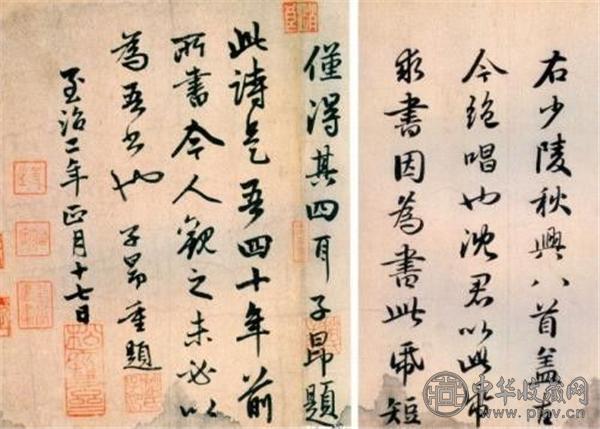 右少陵秋興八首盖古
今絶唱也沈君以此帋
求書因為書此帋短
僅得其四耳子昂題
此詩是吾四十年前
所書今人觀之未必以
為吾書也 子昂重題
至治二年正月十七日
中华收藏网